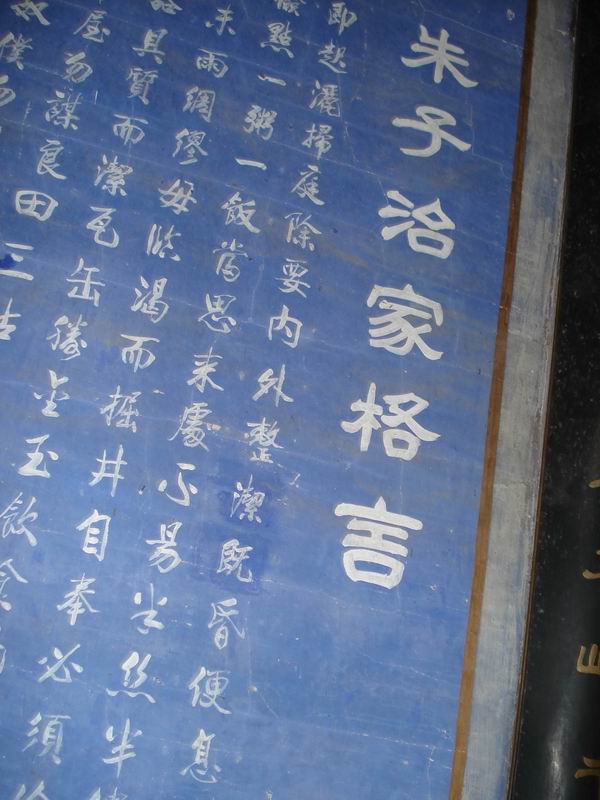 朱子治家格言
即起灑掃庭除要內外整潔既昏便息
點一粥一飯當思来處不易半丝半
未雨綢繆毋臨渴而掘井自奉必須
具質而潔瓦缶勝金玉飲食
屋勿謀良田三
僕勿